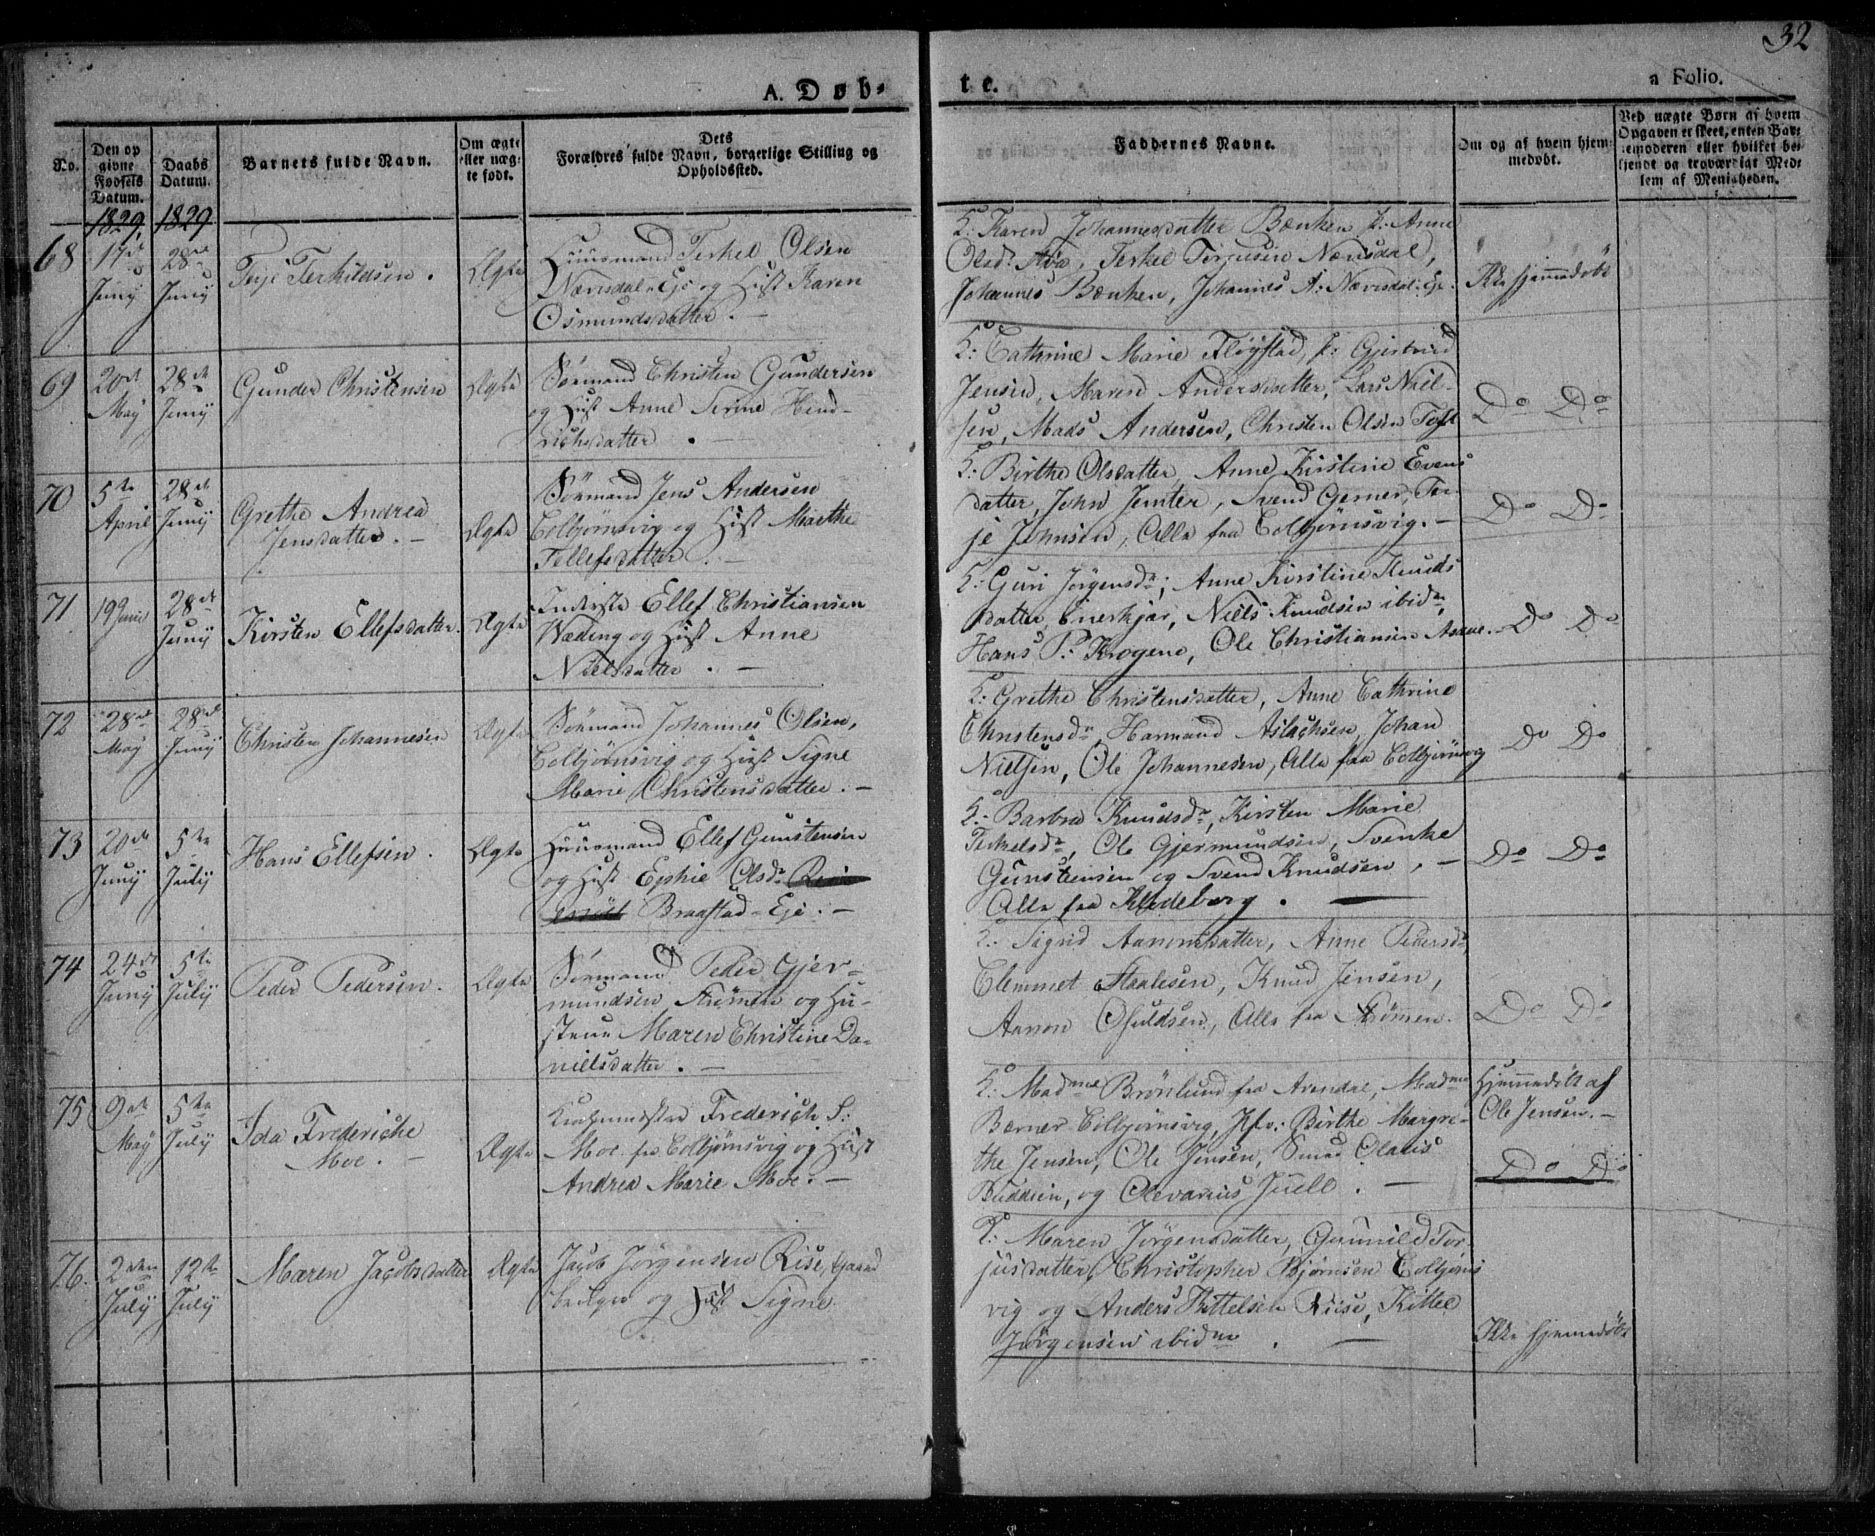 32
A. Døb-
te.
a Folio.
No.
Den op
givne
Fødsels
Datum.
Daabs
Datum.
Barnets fulde Navn.
Om ægte
eller uæg-
te født.
Dets
Forældres fulde Navn, borgerlige Stilling og
Opholdssted.
Faddernes Navne.
Om og af hvem hjem-
medøbt.
Ved uægte Børn af hvem
Opgaven er skeet, enten Bar-
nemoderen eller hvilket be-
kjendt og troværdigt Med-
lem af Menigheden.
1829, 1829
68
17de
Juny
28de
Juny
Terje Terkildsen.
Ægte
Huusmand Terkel Olsen
Næversdal-Eje og Hust Karen
Osmundsdatter. -
K: Karen Johannesdatter Bænken P: Anne
Olsdr, Terkel Torjusen Næversdal,
Johannes Bænken, Johannes A: Næversdal-Eje.
Ikke hjemmedøbt
69
20de
May
28de
Juny
Gunder Christensen
Ægte
Sømand Christen Gundersen
og Hust Anne Serine Hend-
richsdatter. -
K: Cathrine Marie Fløystad, P: Gjertrud
Jensen, Maren Andersdatter, Lars Niel-
sen, Mads Andersen, Christen Olsen
Do Do
70
5te
April
28de
Juny
Grethe Andrea
Jensdatter. -
Ægte
Sømand Jens Andersen
Colbjørnsvig og Hust Marthe
Tellefsdatter. -
K: Birthe Olsdatter, Anne Kirstine Evens
datter, John, Svend Gerner, Ter-
je Johnsen, Alle fra Colbjørnsvig. -
Do Do
71
19 Juni
28de
Juny
Kirsten Ellefsdatter.
Ægte
Inderste Ellef Christiansen
Wæding og Hust Anne
Nielsdatter. -
K: Guri Jørgensdr; Anne Kirstine Knuds
datter, Enerkjær, Niels Knudsen ibidm,
Hans P: Krogene, Ole Christiansen
Do Do
72
28de
May
28de
Juny
Christen Johannesen
Ægte
Sømand Johannes Olsen,
Colbjørnsvig og Hust Signe
Marie Christensdatter. -
K: Grethe Christensdatter, Anne Cathrine
Christensdr, Harmand Aslachsen, Johan
Nielsen, Ole Johannesen, Alle fra Colbjørnsvig
Do Do
73
20de
Juny
5te
July
Hans Ellefsen.
Ægte
Huusmand Ellef Gunstensen
og Hust Ephie Olsdr
Bragstad-Eje. -
K: Barbra Knudsdr, Kirsten Marie
Terkelsdr, Ole Gjermundsen, Svenke
Gunstensen og Svend Knudsen, -
Alle fra Kladeborg. -
Do Do
74
24de
Juny
5te
July
Peder Pedersen.
Ægte
Sømand Peder Gjer-
mundsen Strømen og Hu-
strue Maren Christine Da-
nielsdatter. -
K: Sigrid Aanonsdatter, Anne Pedersdr
Clemmet Staalesen, Knud Jensen,
Aanon Osuldsen, Alle fra Strømen.
Do Do
75
9de
May
5te
July
Ida Frederiche
Moe. -
Ægte
Frederich S:
Moe fra Colbjørnsvig og Hust
Andrea Marie Moe. -
K: Madme Brønlund fra Arendal, Madme
Berner Colbjørnsvig, Jfr: Birthe Margre-
the Jensen, Ole Jensen, Smed Olaus
Buddsen, og Olevarius Juell. -
Hjemmedøbt af
Ole Jensen. -
Do Do
76.
2den
July
12te
July
Maren Jacobsdatter
Ægte
Jacob Jørgensen Rise, Gaard
bruger og Hust Signe
K: Maren Jørgensdatter, Gunnild Tor-
jusdatter, Christopher Bjørnsen Colbjørns
vig og Anders Kittelsen Riise, Kittel
Jørgensen ibidm. -
Ikke hjemmedøbt